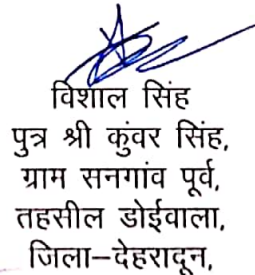 विशाल सिंह
पुत्र श्री कुंवर सिंह,
ग्राम सनगांव पूर्व,
तहसील डोईवाला,
जिला–देहरादून,